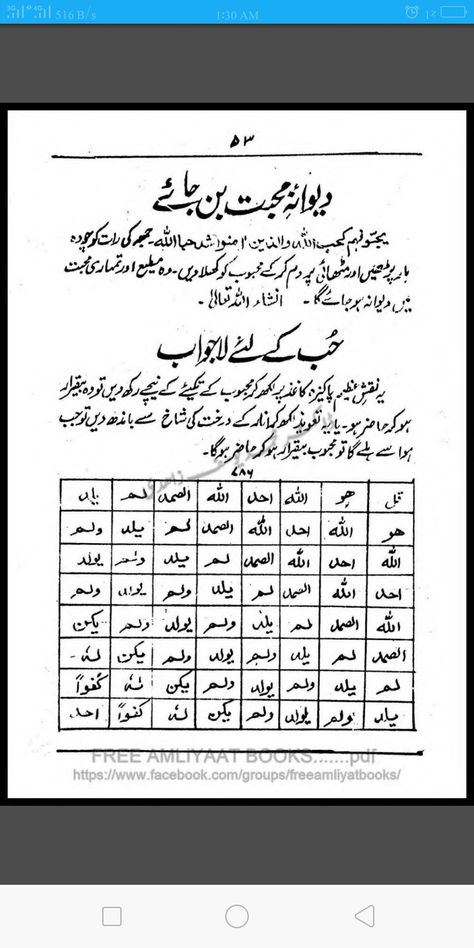 3G 4G 516 B/s 1:30 AM 1%
۵۳
دیوانۂ محبت بن جائے
یحبونہم کحب اللہ والذین اٰمنوا اشد حبا اللہ۔ جمعہ کی رات کو چودہ
بار پڑھیں اور مٹھائی پر دم کر کے محبوب کو کھلا دیں۔ وہ مطیع اور تمہاری محبت
میں دیوانہ ہو جائے گا۔ انشاء اللہ تعالیٰ۔
حُب کے لئے لاجواب
یہ نقش عظیم پاکیزہ کاغذ پر لکھ کر محبوب کے تکیئے کے نیچے رکھ دیں تو وہ بیقرار
ہو کر حاضر ہو۔ یا یہ تعویذ لکھ کر انار کے درخت کی شاخ سے باندھ دیں تو جب
ہوا سے ہلے گا تو محبوب بیقرار ہو کر حاضر ہوگا۔
۷۸۶
قل ھو اللہ احد اللہ الصمد لم یلد
ھو اللہ احد اللہ الصمد لم یلد ولم
اللہ احد اللہ الصمد لم یلد ولم یولد
احد اللہ الصمد لم یلد ولم یولد ولم
اللہ الصمد لم یلد ولم یولد ولم یکن
الصمد لم یلد ولم یولد ولم یکن لہ
لم یلد ولم یولد ولم یکن لہ کفواً
یلد ولم یولد ولم یکن لہ کفواً احد
FREE AMLIYAAT BOOKS.......pdf
https://www.facebook.com/groups/freeamliyatbooks/